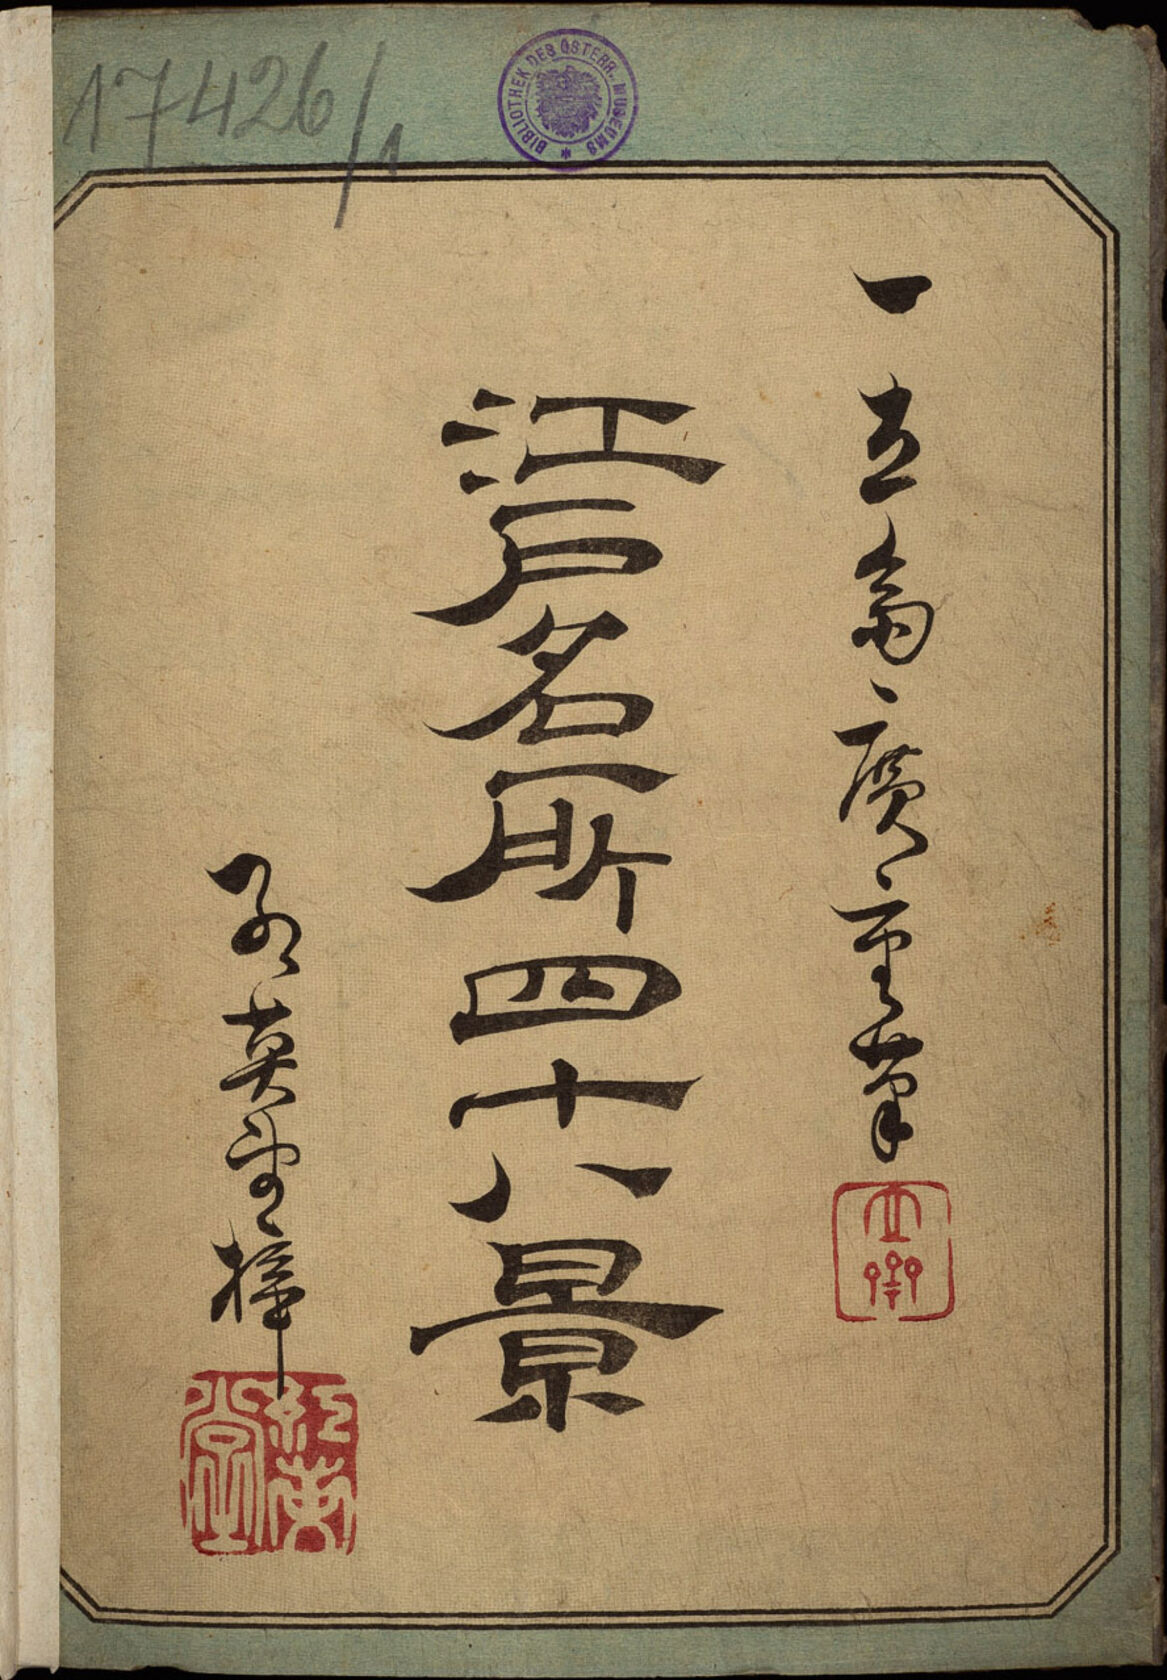 17426/1
BIBLIOTHEK DES ÖSTERR. MUSEUMS *
一立斎廣重筆
江戸名所四十八景
紅英堂梓
紅英堂